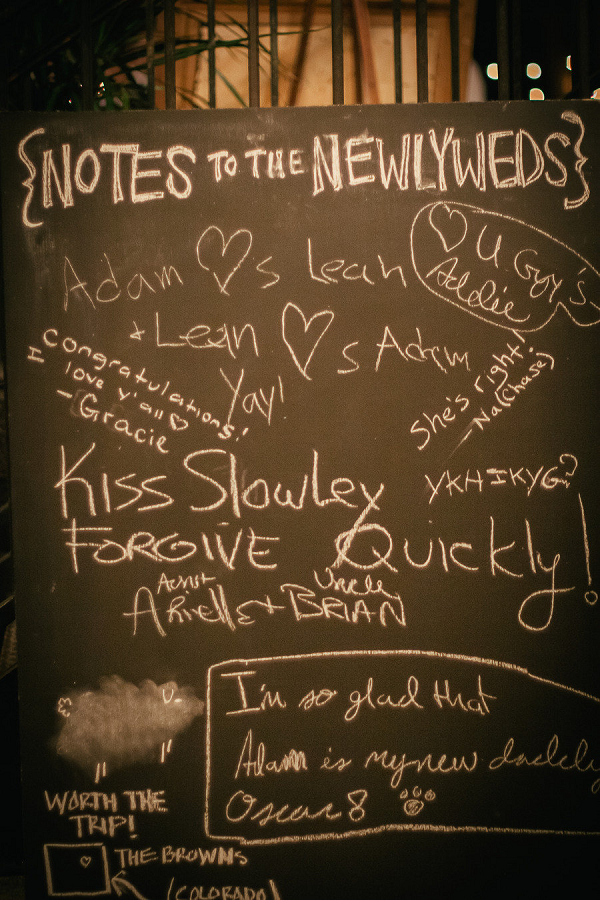 {NOTES TO THE NEWLYWEDS}
Adam ♡s Leah
♡ U Guy's
Addie
+ Leah ♡s Adam
Yay!
Congratulations!
I love y'all ♡
- Gracie
She's right!
- Na(Chase)
Kiss Slowley
YKHIKYG?
FORGIVE Quickly!
Aunt Uncle
Arielle + BRIAN
I'm so glad that
Adam is my new daddy
Oscar
WORTH THE
TRIP!
THE BROWNS
(COLORADO)